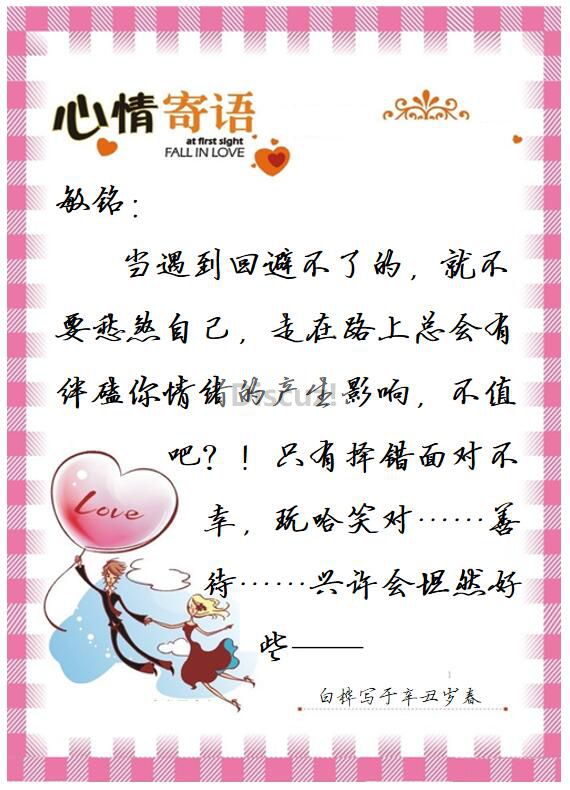 心情寄语
at first sight
FALL IN LOVE
敏铭：
当遇到回避不了的，就不
要愁煞自己，走在路上总会有
绊磕你情绪的产生影响，不值
Discuz!
吧？！只有择错面对不
幸，玩哈笑对……善
Love
待……兴许会坦然好
些——
白桦写于辛丑岁春